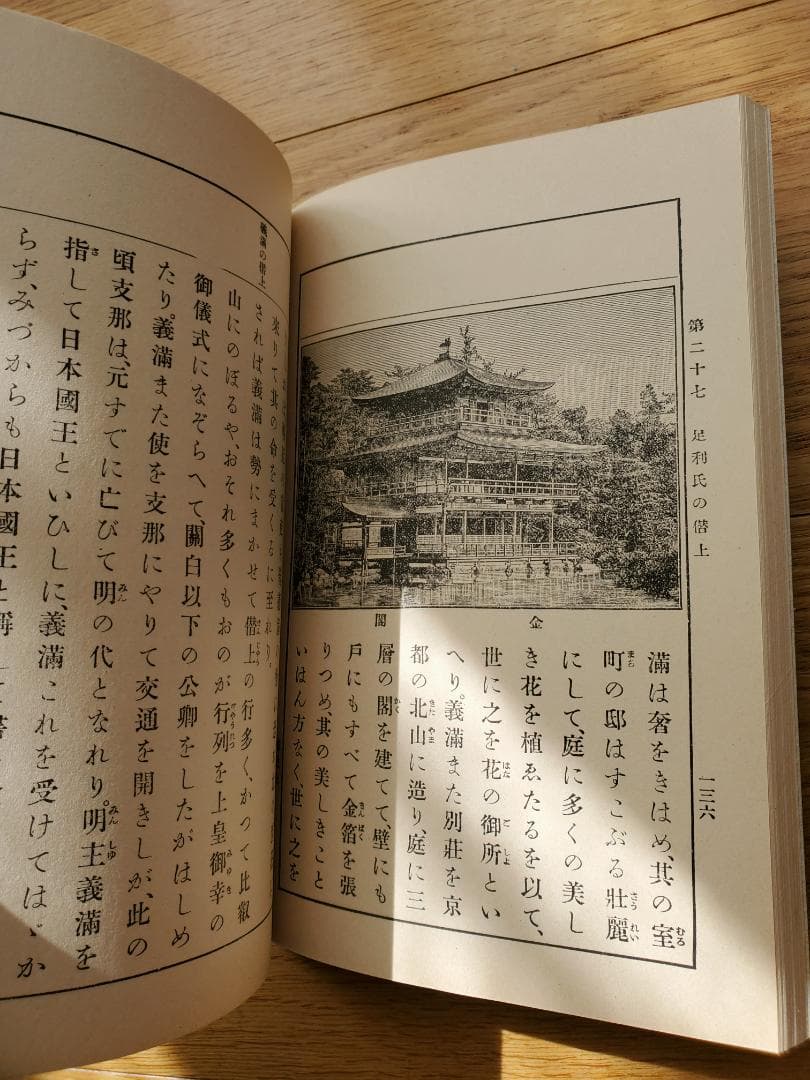 第二十七 足利氏の僭上
一三六
金閣
滿は奢をきはめ、其の室
町の邸はすこぶる壯麗
にして、庭に多くの美し
き花を植ゑたるを以て、
世に之を花の御所とい
へり。義滿また別莊を京
都の北山に造り、庭に三
層の閣を建てて、壁にも
戶にもすべて金箔を張
りつめ、其の美しきこと
いはん方なく、世に之を
義滿の僭上
來りて其の命を受くるに至れり。
されば義滿は勢にまかせて僭上の行多く、かつて比叡
山にのぼるや、おそれ多くもおのが行列を上皇御幸の
御儀式になぞらへて、關白以下の公卿をしたがはしめ
たり。義滿また使を支那にやりて交通を開きしが、此の
頃支那は、元すでに亡びて明の代となれり。明主義滿を
指して日本國王といひしに、義滿これを受けてはぢか
らず、みづからも日本國王と稱